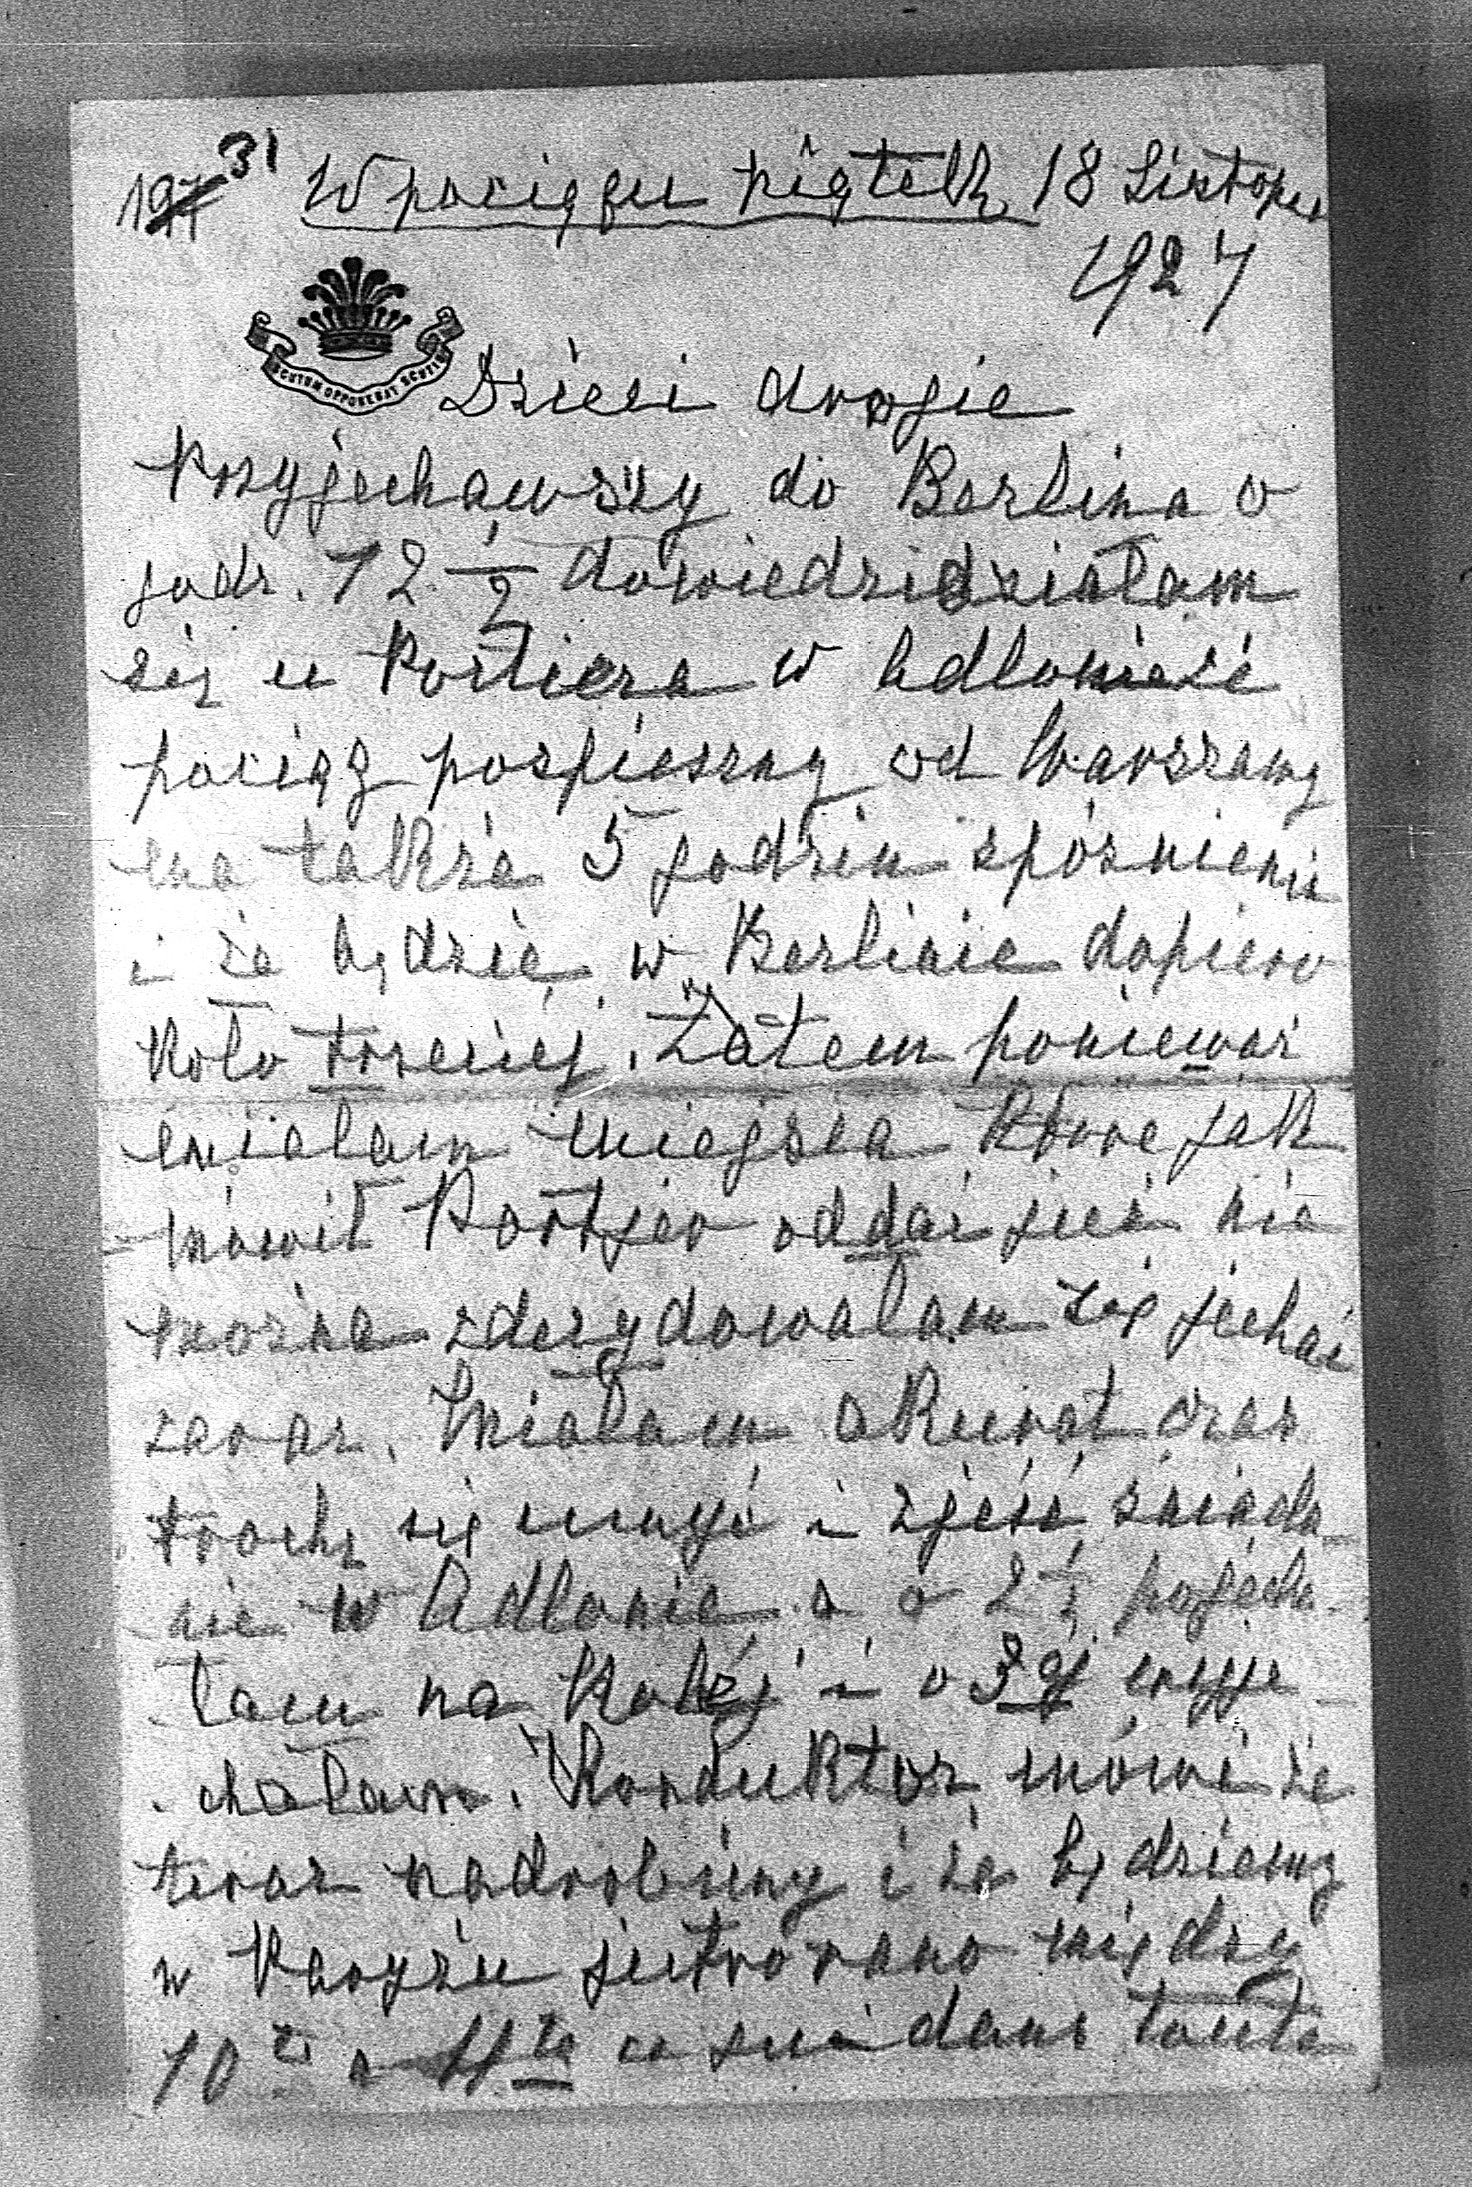 31 W pociągu piątek 18 Listopa
1927
SCUTUM OPPONEBAT SCUTIS
Dzieci drogie
Przyjechawszy do Berlina o
godz. 12 1/2 dowiedzidziałam
się u Portiera w Adlonie że
pociąg pospieszny od Warszawy
ma także 5 godzin spóźnienia
i że będzie w Berlinie dopiero
koło trzeciej. Zatem ponieważ
miałam miejsca które jak
mówił Portjer oddać już nie
można zdecydowałam się jechać
zaraz. Miałam akurat czas
trochę się umyć i zjeść śniada-
nie w Adlonie a o 2 1/2 pojecha-
łam na kolej i o 3ej wyje-
chałam. Konduktor mówi że
teraz nadrobimy i że będziemy
w Paryżu jutro rano między
10tą a 11tą ce soir dans toute